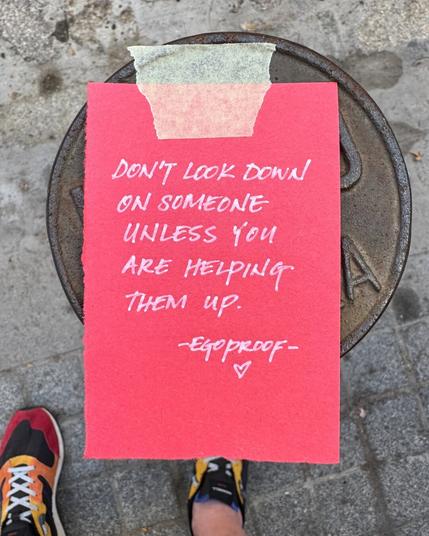 DON'T LOOK DOWN
ON SOMEONE
UNLESS YOU
ARE HELPING
THEM UP.
-EGOPROOF-
A